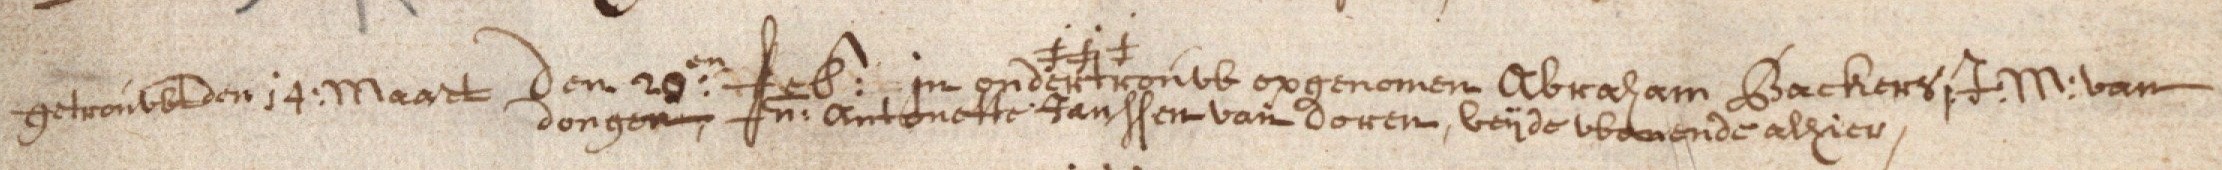 getrouwt den 14: Maart
Den 20en: Feb: in ondertrouw opgenomen Abraham Backers, J: M: van
dongen, En: Antonette Janssen van Doren, beijde wonende alhier,